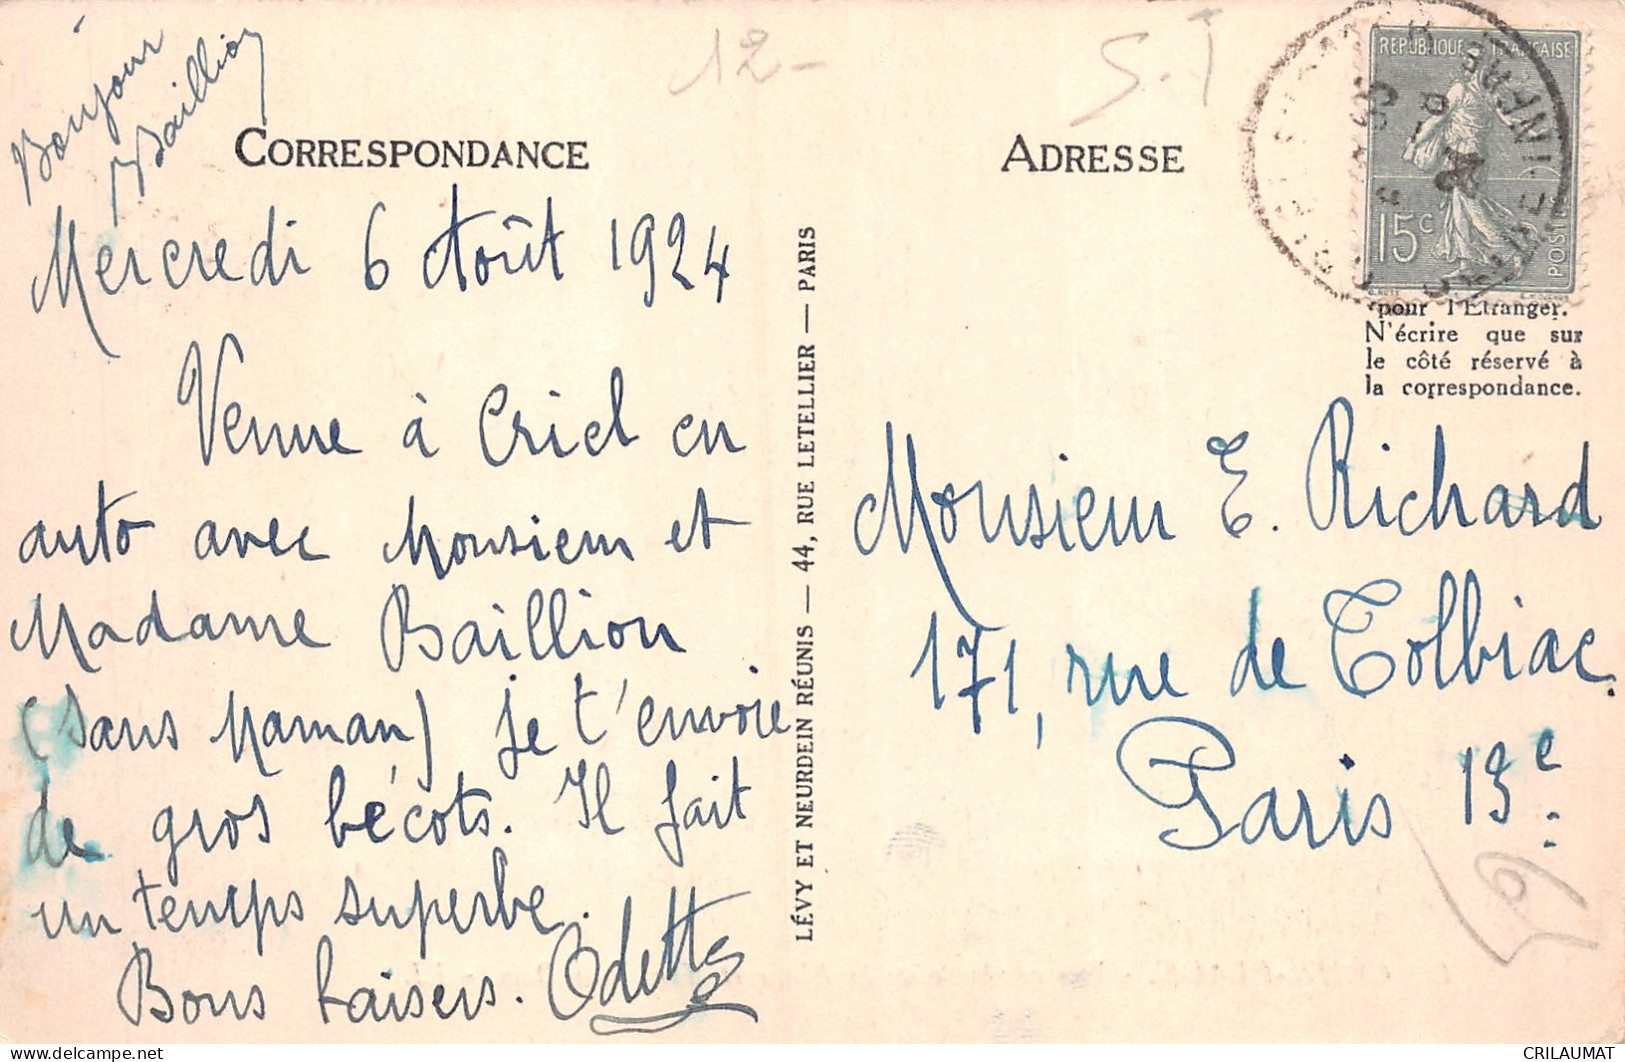 Bonjour
Baillion
12-
S.T
CORRESPONDANCE
Mercredi 6 Août 1924
Venue à Criel en
auto avec Monsieur et
Madame Baillion
(sans Maman) je t'envoie
de gros bécots. Il fait
un temps superbe.
Bons baisers. Odette
LÉVY ET NEURDEIN RÉUNIS — 44, RUE LETELLIER — PARIS
ADRESSE
REPUBLIQUE FRANÇAISE
15c
POSTES
INFRE
pour l'Etranger.
N'écrire que sur
le côté réservé à
la correspondance.
Monsieur E. Richard
171, rue de Tolbiac.
Paris 13e.
CRILAUMAT